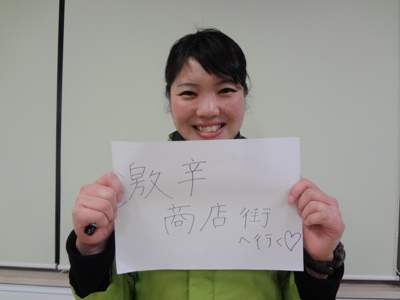 激辛
商店街
へ行く♡